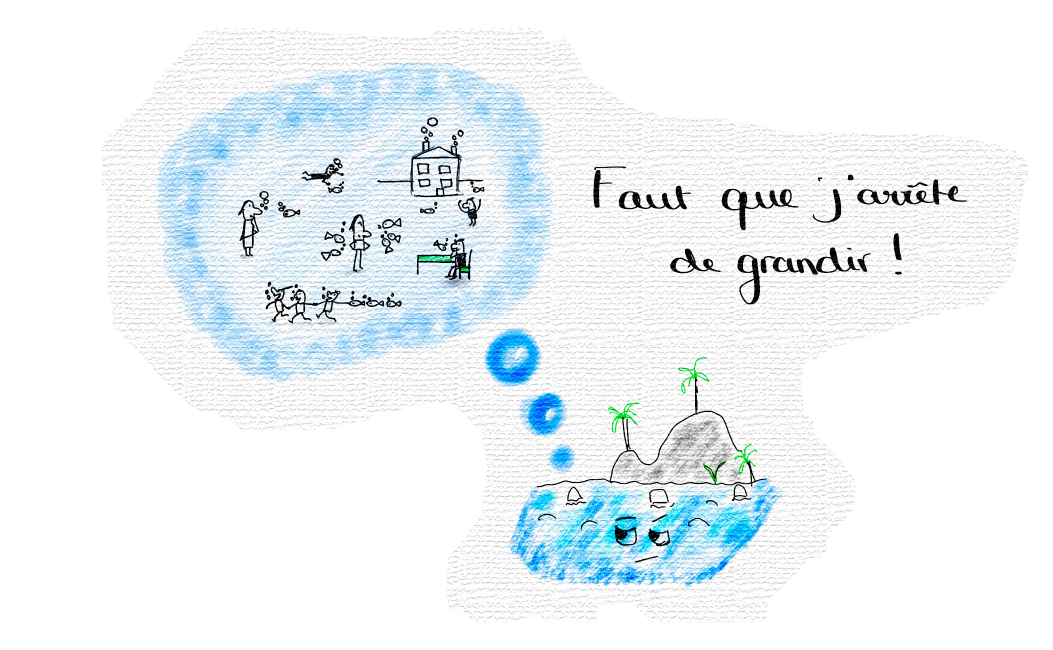 Faut que j'arrête
de grandir !